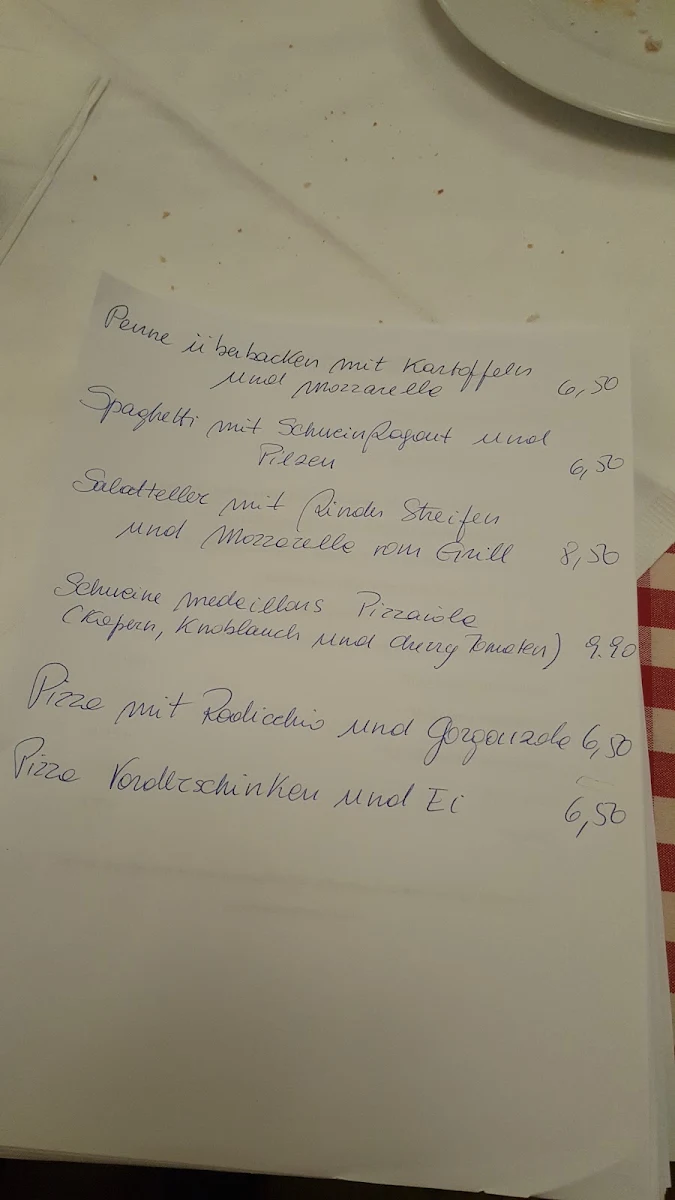 Penne überbacken mit Kartoffeln
und Mozzarella 6,50
Spaghetti mit SchweinRagout und
Pilzen 6,50
Salatteller mit Rinder Streifen
und Mozzarella vom Grill 8,50
Schweine medaillons Pizzaiola
(Kapern, Knoblauch und cherry Tomaten) 9.90
Pizza mit Radicchio und Gorgonzola 6,50
Pizza Vorderschinken und Ei 6,50